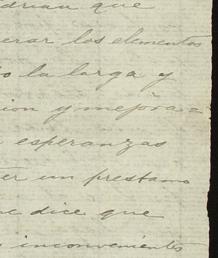 drian que
erar los elementos
o la larga y
ion y mejora =
esperanzas
er un prestamo
ue dice que
s inconvenientes